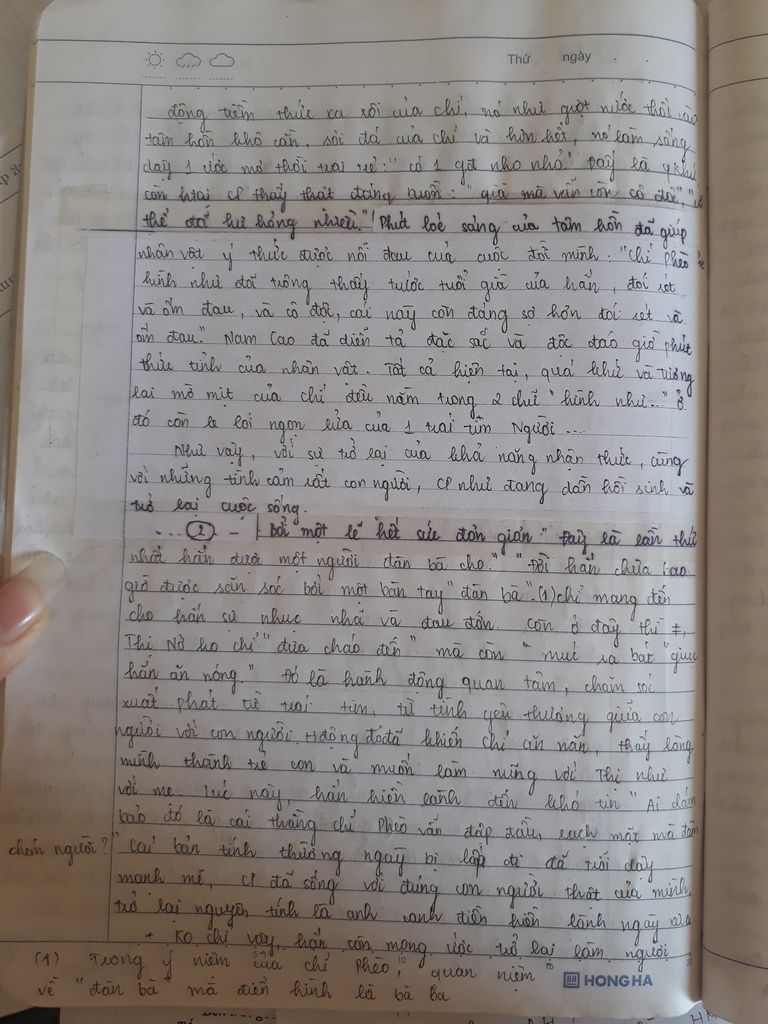 Thứ ngày
động tiềm thức xa xôi của chí, nó như giọt nước thổi vào
tâm hồn khô cằn, sỏi đá của chí và hơn hết, nó làm sống
dạy 1 ước mơ thời trai trẻ: "có 1 gđ nho nhỏ" Đấy là qkhứ
còn htại CP thấy thật đáng buồn: "già mà vẫn còn cô độc",
thể đã hư hỏng nhiều." Phút loé sáng của tâm hồn đã giúp
nhân vật ý thức được nỗi đau của cuộc đời mình: "Chí Phèo
hình như đã trông thấy trước tuổi già của hắn, đói rét
và ốm đau, và cô độc, cái này còn đáng sợ hơn đói rét và
ốm đau." Nam Cao đã diễn tả đặc sắc và độc đáo giờ phút
thức tỉnh của nhân vật. Tất cả hiện tại, quá khứ và tương
lai mờ mịt của chí đều nằm trong 2 chữ "hình như..." Ở
đó còn le lói ngọn lửa của 1 trái tim Người...
Như vậy, với sự trở lại của khả năng nhận thức, cùng
với những tình cảm rất con người, CP như đang dần hồi sinh và
trở lại cuộc sống.
... (2) - Bởi một lẽ hết sức đơn giản "Đấy là lần thứ
nhất hắn được một người đàn bà cho." "Đời hắn chưa bao
giờ được săn sóc bởi một bàn tay "đàn bà".(1) chỉ mang đến
cho hắn sự nhục nhã và đau đớn. Còn ở đây thì ≠,
Thị Nở ko chỉ "đưa cháo đến" mà còn "múc ra bát "giục
hắn ăn nóng." Đó là hành động quan tâm, chăm sóc
xuất phát từ trái tim, từ tình yêu thương giữa con
người với con người. Hđộng đóđã khiến chí ăn năn, thấy lòng
mình thành trẻ con và muốn làm nũng với Thị như
với mẹ. Lúc này, hắn hiền lành đến khó tin "Ai dám
bảo đó là cái thằng chí Phèo vẫn đập đầu, rạch mặt mà đâm
chém người?" Cái bản tính thường ngày bị lấp đi đã trỗi dậy
mạnh mẽ, CP đã sống với đúng con người thật của mình,
trở lại nguyên tính là anh canh điền hiền lành ngày xưa
+ Ko chỉ vậy, hắn còn mong ước trở lại làm người
(1) Trong ý niệm của chí Phèo, quan niệm
về "đàn bà" mà điển hình là bà ba
HONG HA